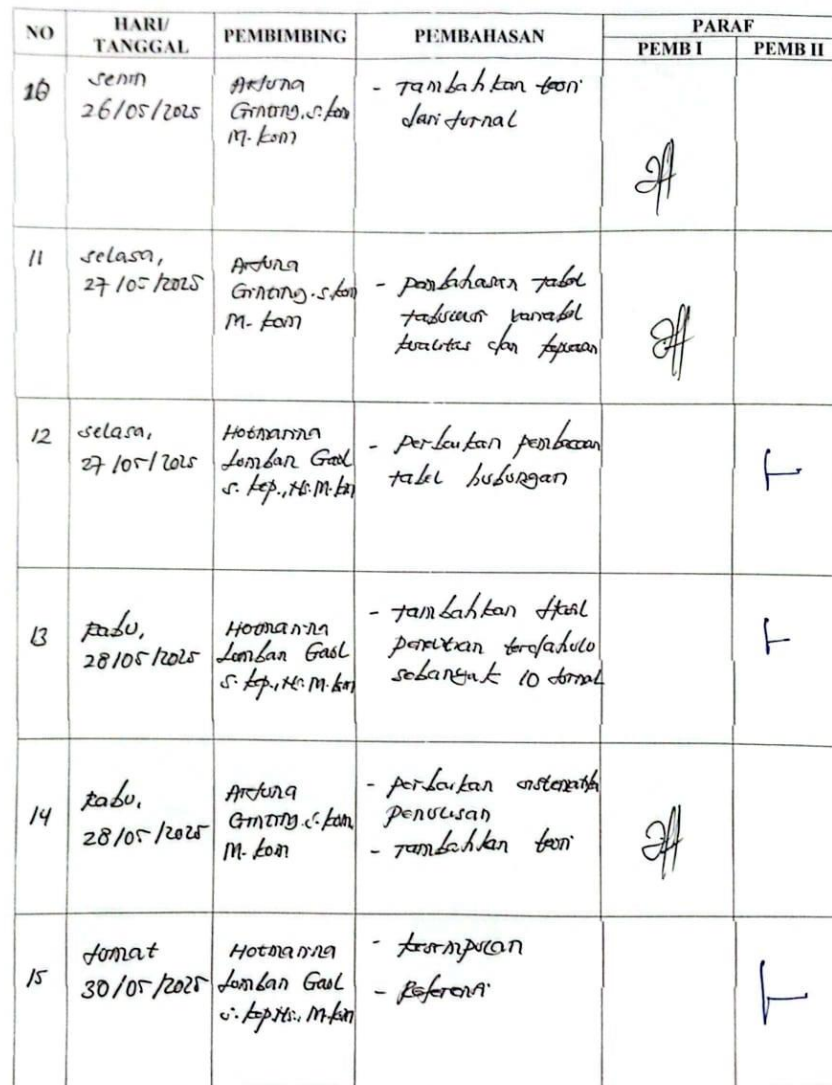 NO
HARI/
TANGGAL
PEMBIMBING
PEMBAHASAN
PARAF
PEMB I
PEMB II
10
Senin
26/05/2025
Arjuna
Ginting, S.kom
M. kom
- Tambahkan teori
dari jurnal
11
selasa,
27/05/2025
Arjuna
Ginting. S.kom
M. kom
- pembahasan tabel
variabel
kualitas dan
12
selasa,
27/05/2025
Hotmarina
Lumban Gaol
S. kep., Ns. M. km
- perbaikan pembacaan
tabel hubungan
13
Rabu,
28/05/2025
Hotmarina
Lumban Gaol
S. kep., Ns. M. km
- tambahkan Hasil
penelitian terdahulu
sebanyak 10 jurnal
14
Rabu,
28/05/2025
Arjuna
Ginting. S. kom,
M. kom
- perbaikan
penulisan
- Tambahkan teori
15
Jumat
30/05/2025
Hotmarina
Lumban Gaol
S. kep Ns., M. km
- kesimpulan
- Referensi